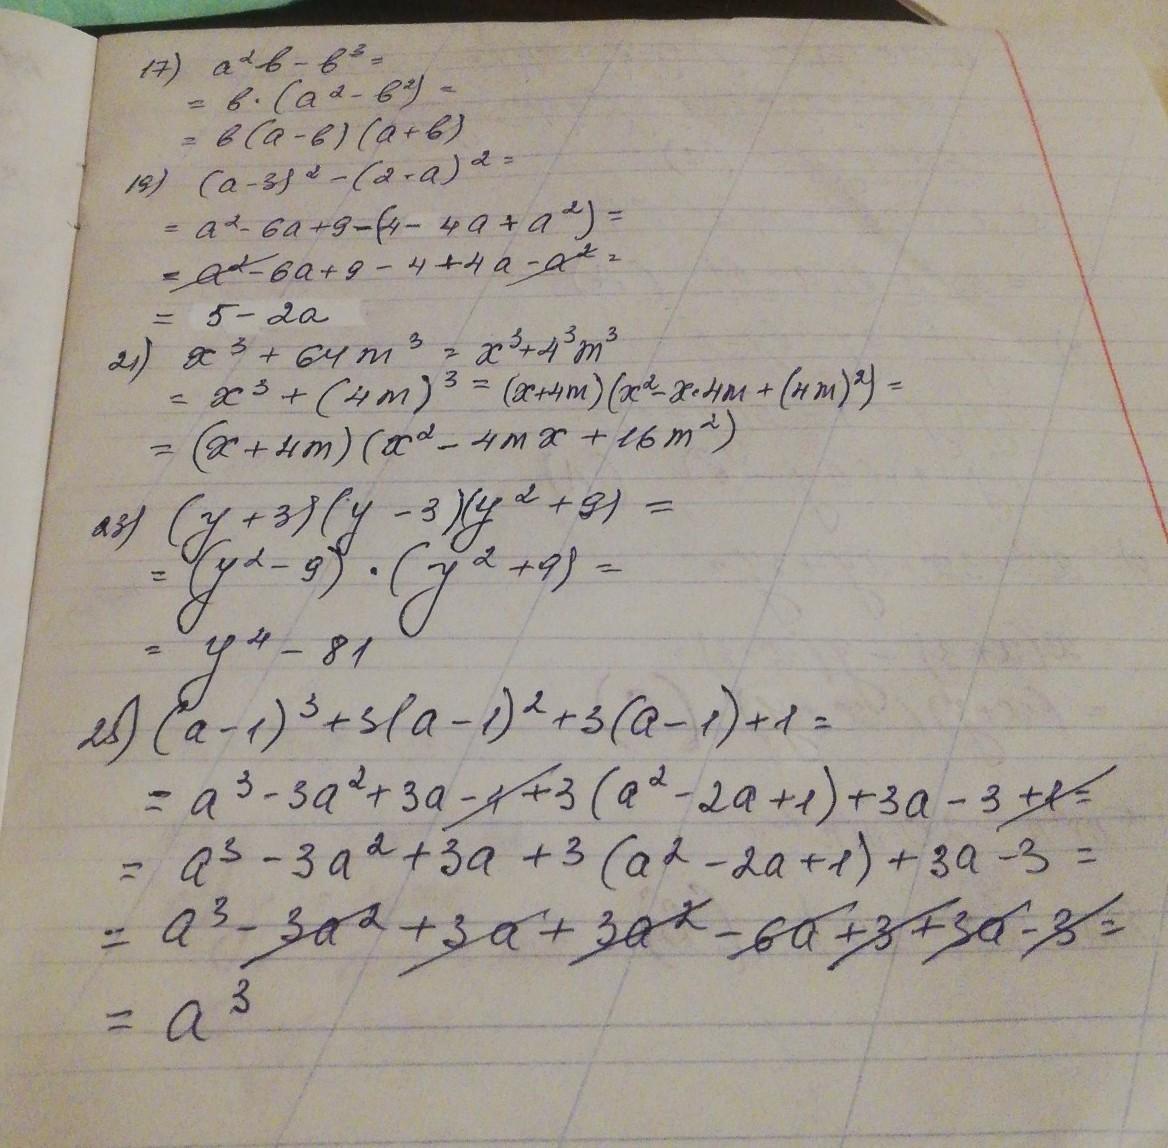 17) a²b - b³ =
= b·(a² - b²) =
= b(a - b)(a + b)
19) (a - 3)² - (2 - a)² =
= a² - 6a + 9 - (4 - 4a + a²) =
= a² - 6a + 9 - 4 + 4a - a² =
= 5 - 2a
21) x³ + 64m³ = x³ + 4³m³
= x³ + (4m)³ = (x + 4m)(x² - x·4m + (4m)²) =
= (x + 4m)(x² - 4mx + 16m²)
23) (y + 3)(y - 3)(y² + 9) =
= (y² - 9)·(y² + 9) =
= y⁴ - 81
25) (a - 1)³ + 3(a - 1)² + 3(a - 1) + 1 =
= a³ - 3a² + 3a - 1 + 3(a² - 2a + 1) + 3a - 3 + 1 =
= a³ - 3a² + 3a + 3(a² - 2a + 1) + 3a - 3 =
= a³ - 3a² + 3a + 3a² - 6a + 3 + 3a - 3 =
= a³